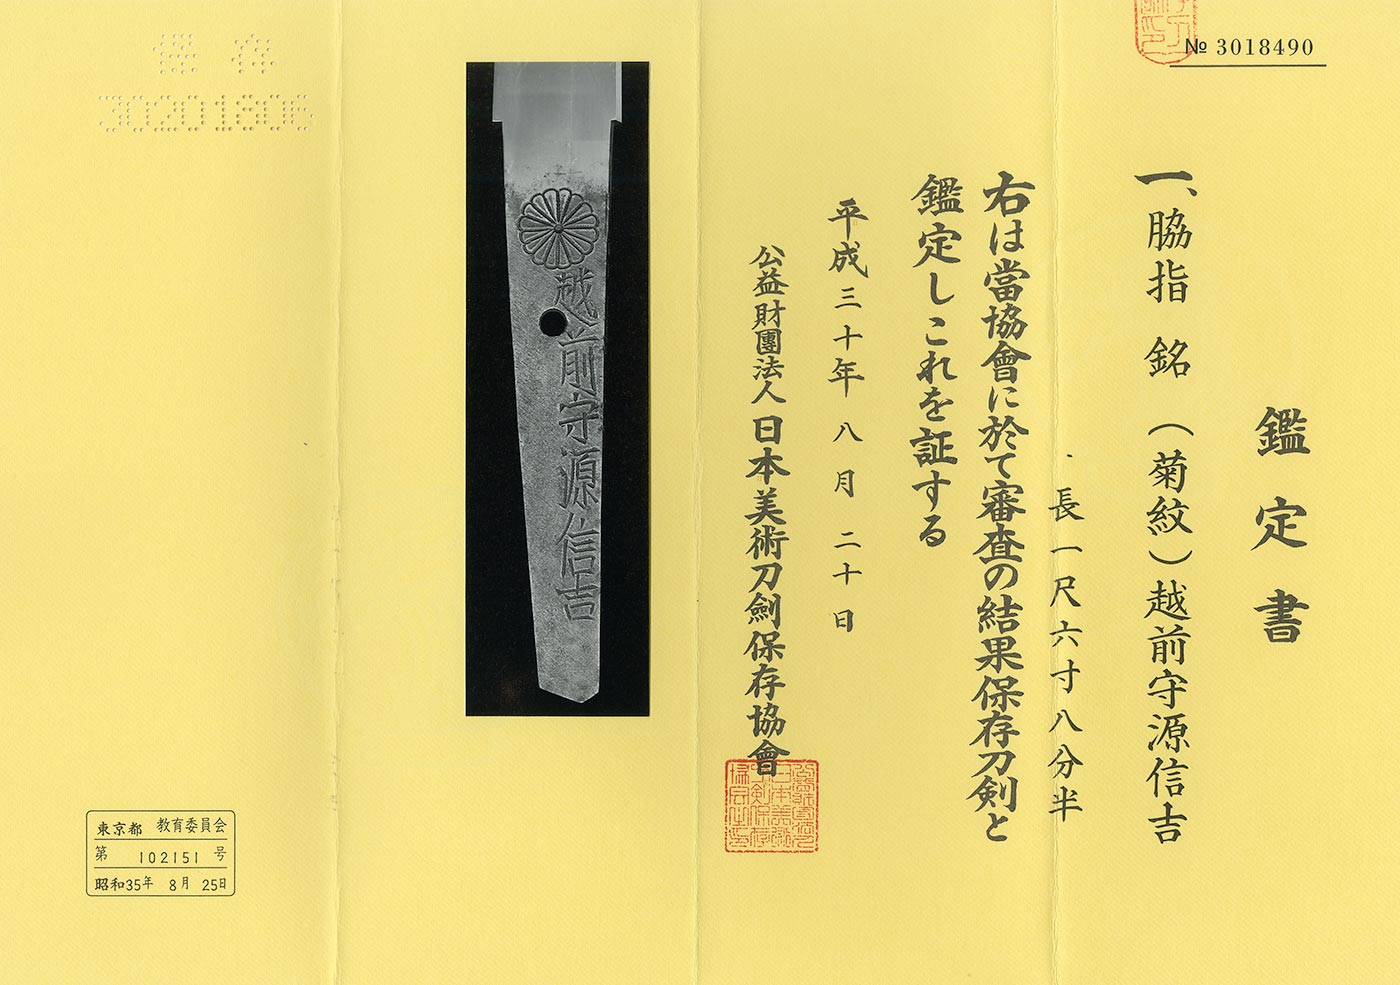 № 3018490
鑑定書
一、脇指 銘 (菊紋)越前守源信吉
長一尺六寸八分半
右は當協會に於て審査の結果保存刀剣と
鑑定しこれを証する
平成三十年八月二十日
公益財團法人 日本美術刀劍保存協會
越前守源信吉
保存
30201806
東京都 教育委員会
第 102151 号
昭和35年 8月 25日